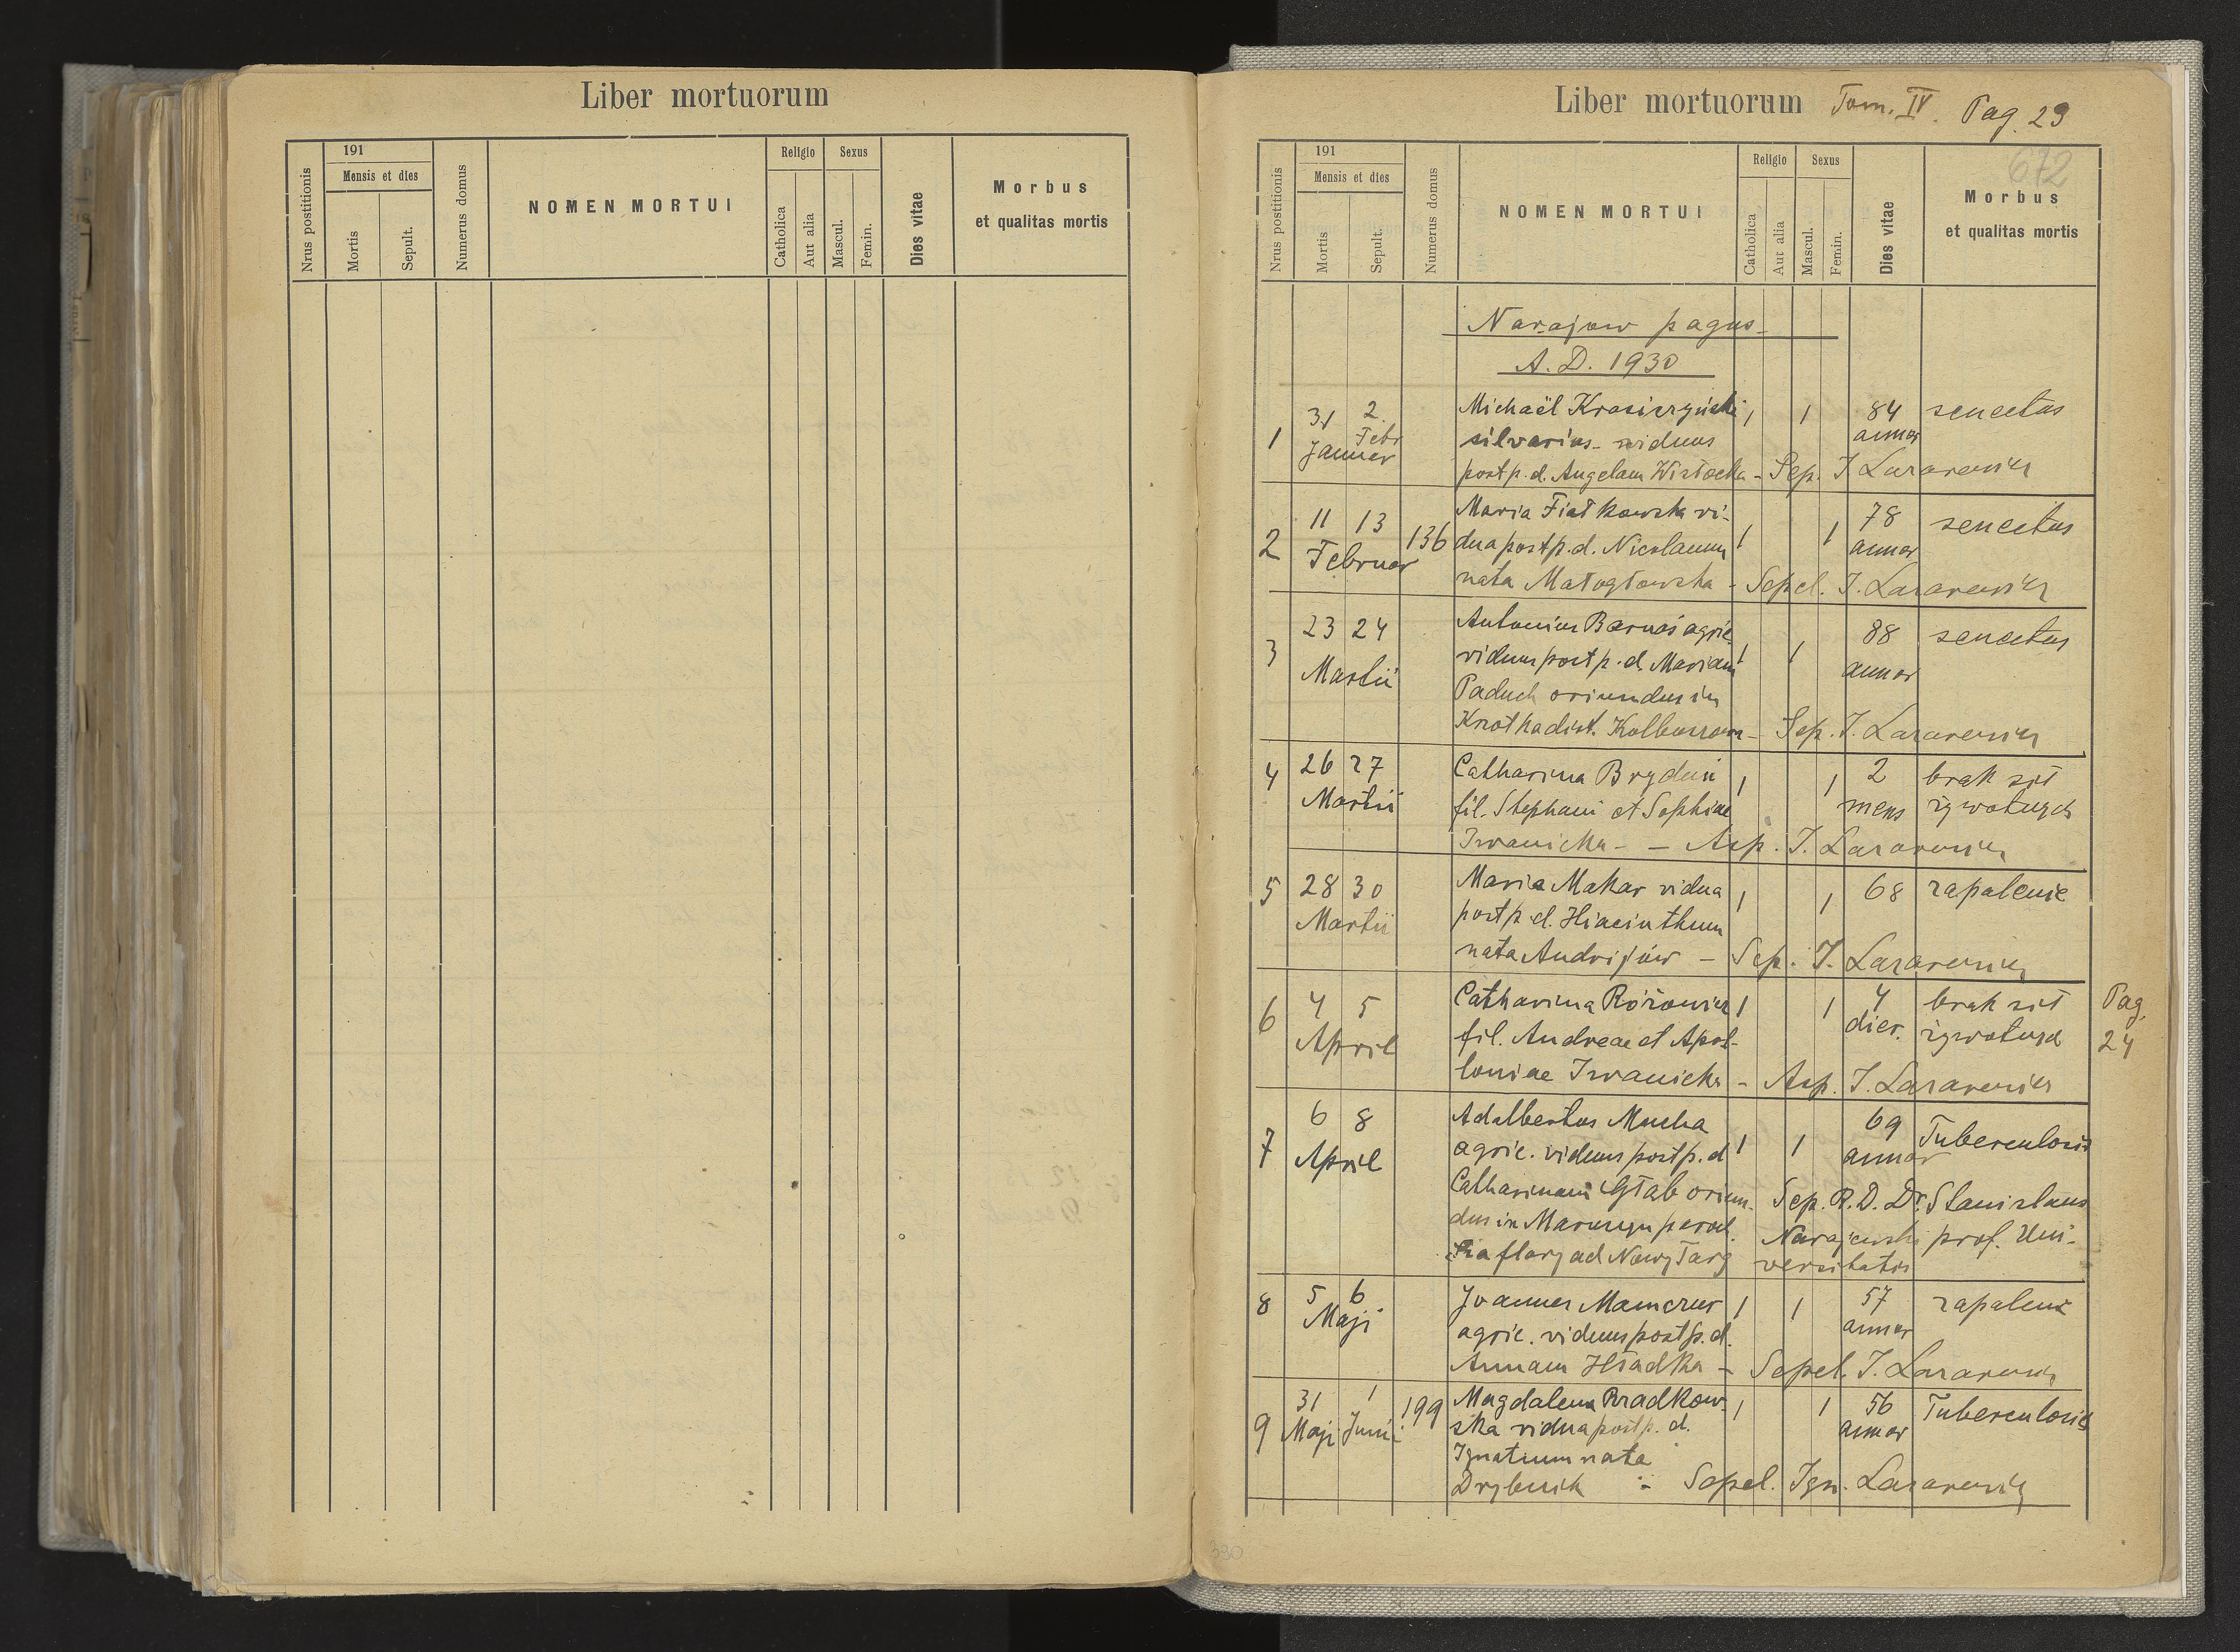 Liber mortuorum
Nrus postitionis
191
Mensis et dies
Mortis
Sepult.
Numerus domus
NOMEN MORTUI
Religio
Catholica
Aut alia
Sexus
Mascul.
Femin.
Dies vitae
Morbus
et qualitas mortis
Liber mortuorum Tom. IV. Pag. 23
672
Nrus postitionis
191
Mensis et dies
Mortis
Sepult.
Numerus domus
NOMEN MORTUI
Religio
Catholica
Aut alia
Sexus
Mascul.
Femin.
Dies vitae
Morbus
et qualitas mortis
Narajow pagus
A. D. 1930
1 31 Januar 2 Febr Michaël Krasiczyński 1 1 84 annor senectus
silvarius viduus
post p. d. Angelam Wisłocka - Sep. I Lazarewicz
2 11 13 Februar 136 Maria Fiałkowska vi- 1 1 78 annor senectus
dua post p. d. Nicolaum
nata Małogłowska - Sepel. I. Lazarewicz
3 23 24 Martii Antonius Barnaś agric. 1 1 88 annor senectus
viduus post p. d. Mariam
Paduch oriundus in
dist. Kolbuszowa - Sep. I. Lazarewicz
4 26 27 Martii Catharina Brydun 1 1 2 mens brak sił
fil. Stephani et Sophiae żywotnych
Iwanicka - - Asp. I. Lazarewicz
5 28 30 Martii Maria Makar vidua 1 1 68 zapalenie
post p. d. Hiacinthum
nata Andrijów - Sep. I. Lazarewicz
6 4 5 April Catharina Różowicz 1 1 4 dier. brak sił Pag. 24
fil. Andreae et Apol- żywotnych
loniae Iwanicka - Asp. I. Lazarewicz
7 6 8 April Adalbertus Mucha 1 1 69 annor Tuberculosis
agric. viduus post p. d.
Catharinam Głab oriun- Sep. R. D. Dr. Stanislaus
dus in Maruszyn paroch. Narajewski prof. Uni-
Szaflary ad Nowy Targ versitatis
8 5 6 Maji Joannes Mamcrus 1 1 57 annor zapalenie
agric. viduus post p. d.
Annam Hładka - Sepel. I. Lazarewicz
9 31 Maji 1 Junii 199 Magdalena Rradkow- 1 1 56 annor Tuberculosis
ska vidua post p. d.
Ignatium nata
Drybnik - Sepel. Ign. Lazarewicz
330